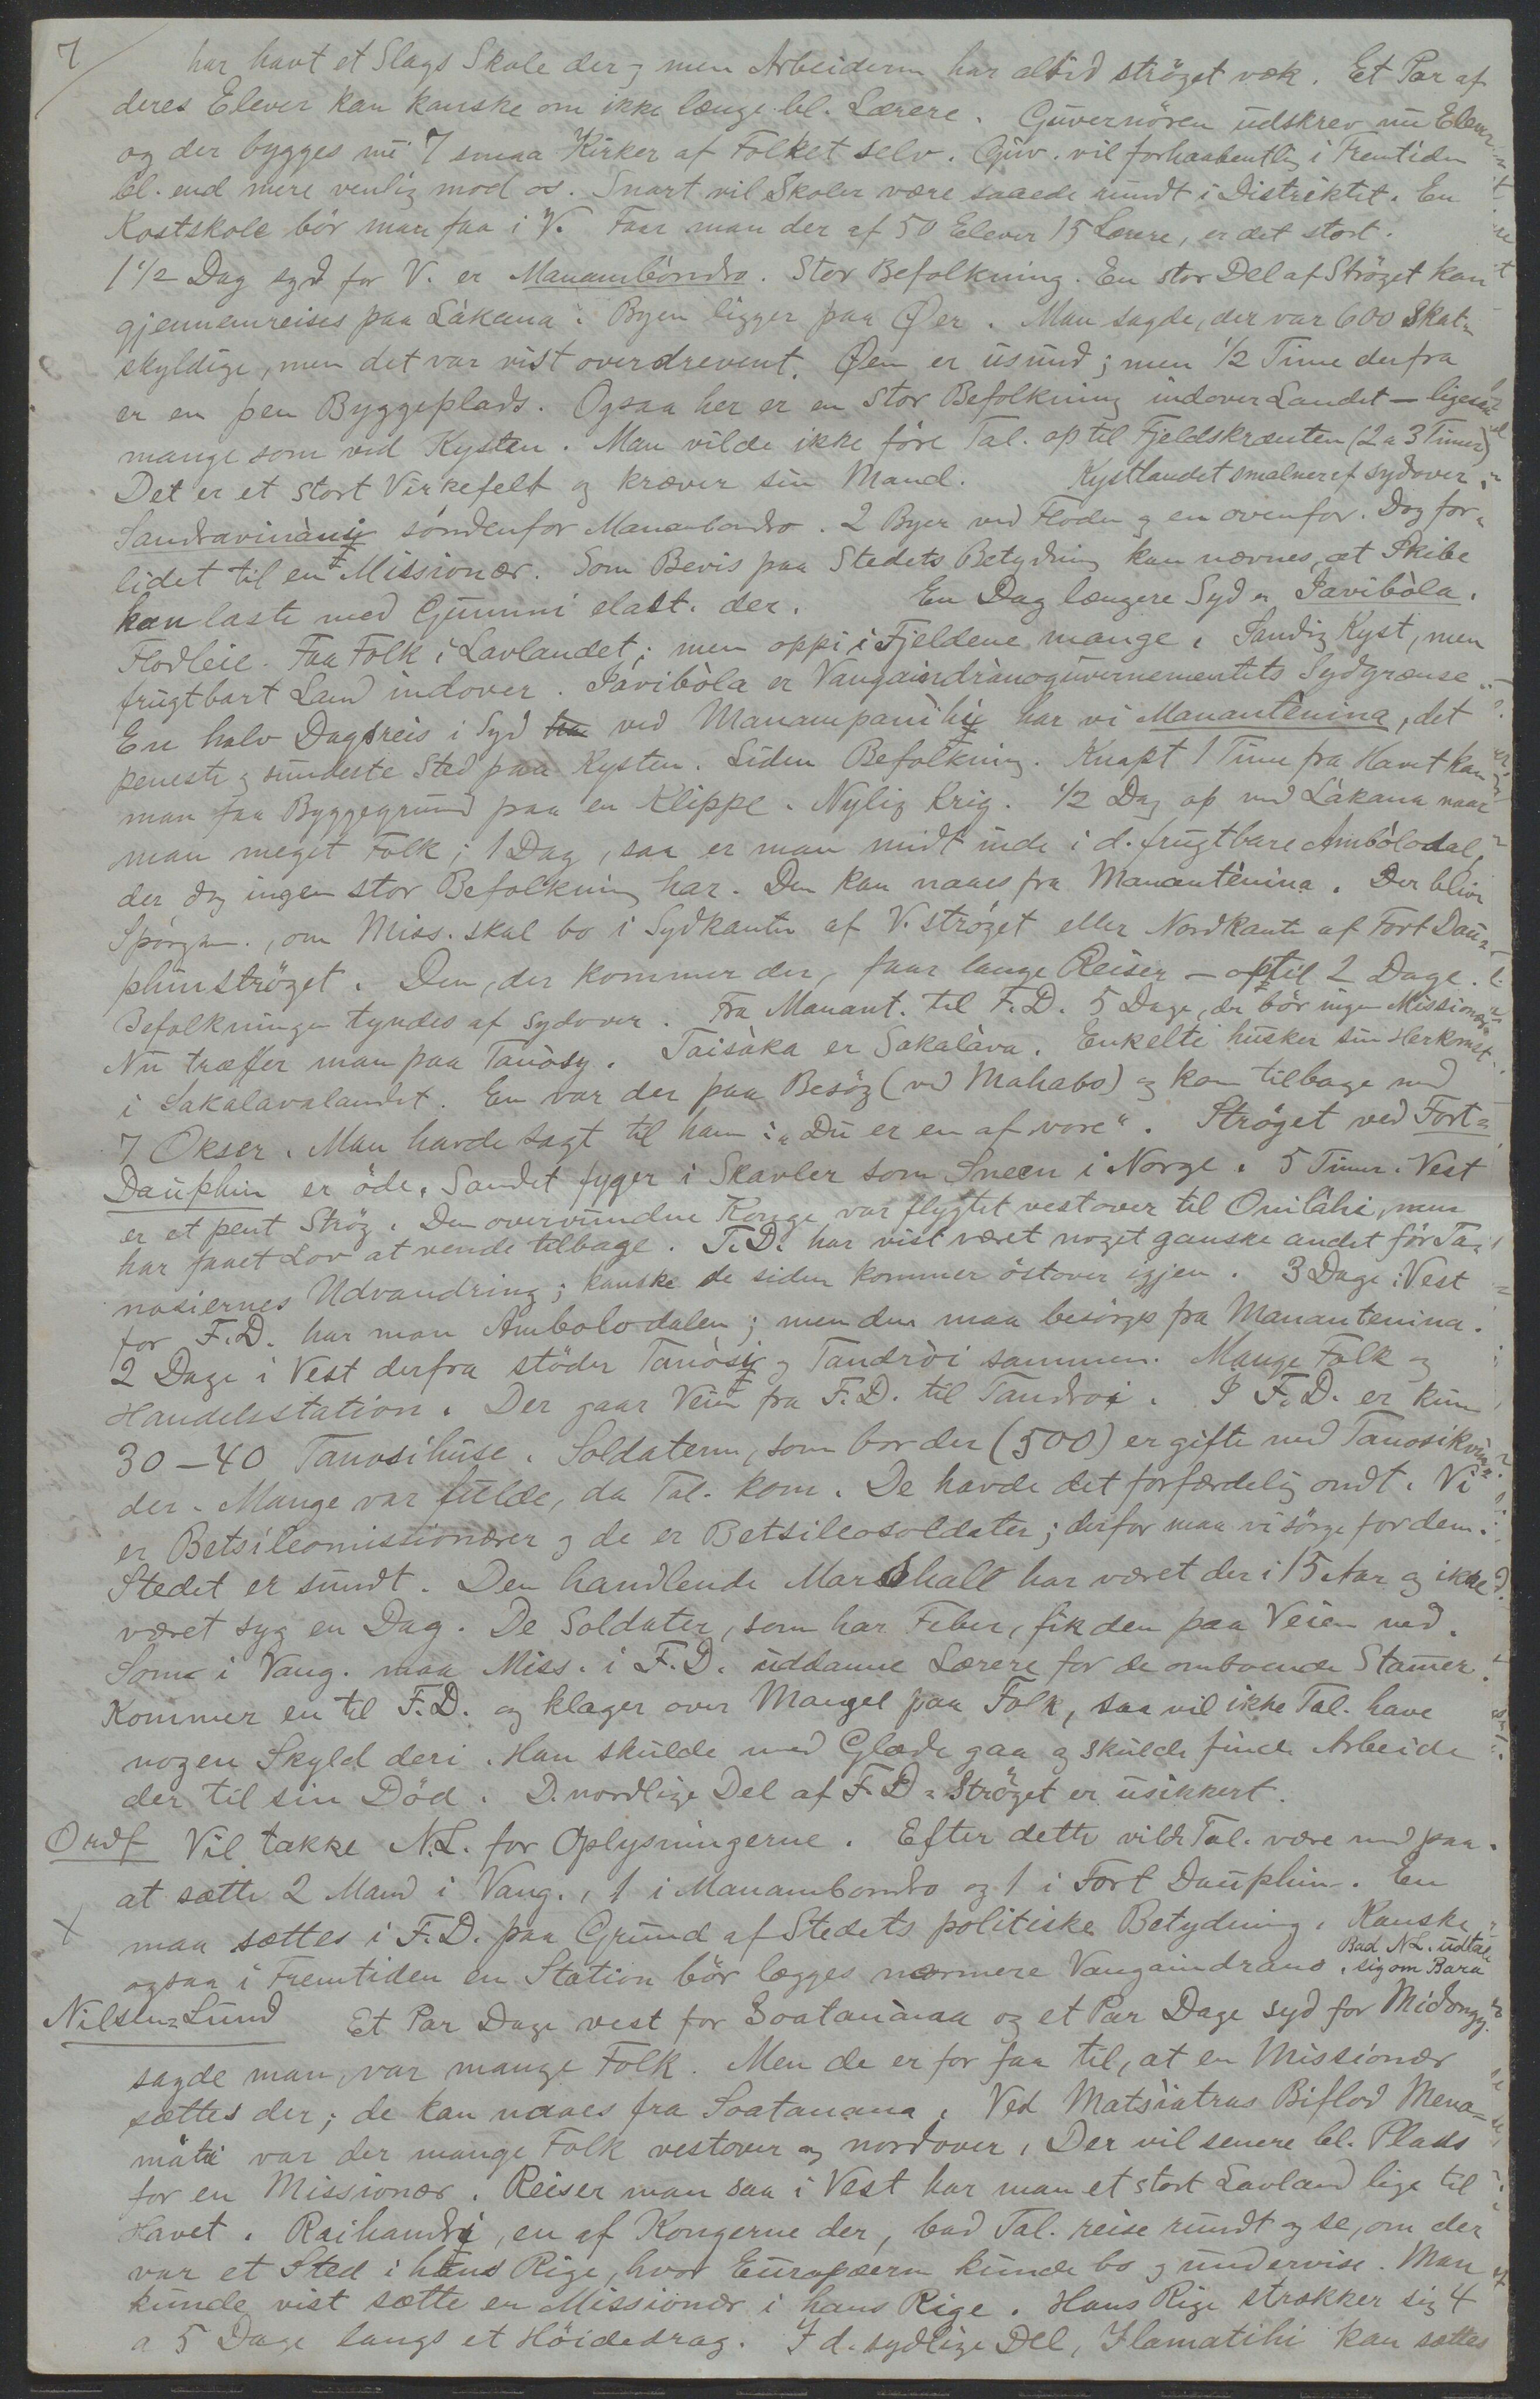 7
har havt et Slags Skole der; men Arbeideren har altid ströget væk. Et Par af
deres Elever kan kanske om ikke længe bl. Lærere. Guvernören udskrev nu Elever
og der bygges nu 7 smaa Kirker af Folket selv. Guv. vil forhaabentlig i Fremtiden
bl. end mere venlig mod os. Snart vil Skoler være saaede rundt i Distriktet. En
Kostskole bör man faa i V. Faar man der af 50 Elever 15 Lærere, er det stort.
1 1/2 Dag syd for V. er Manambòndro. Stor Befolkning. En stor Del af Ströget kan
gjennemreises paa Làkana. Byen ligger paa Øer. Man sagde, der var 600 Skat=
skyldige, men det var vist overdrevent. Øen er usund; men 1/2 Time derfra
er en pen Byggeplads. Ogsaa her er en stor Befolkning indover Landet — ligesaa
mange som ved Kysten. Man vilde ikke före Tal. op til Fjeldskrænten (2 a 3 Timer)
Det er et stort Virkefelt og kræver sin Mand. Kystlandet smalner af sydover.
Sandravinàny söndenfor Manambondro. 2 Byer ved Floden og en ovenfor. Dog for=
lidet til en Missionær. Som Bevis paa Stedets Betydning kan nævnes, at Skibe
kan laste med Gummi elast. der. En Dag længere Syd er Iavibòla.
Flodleie. Faa Folk i Lavlandet; men oppi i Fjeldene mange. Sandig Kyst, men
frugtbart Land indover. Iavibòla er Vangaindrànoguvernementets Sydgrænse.
En halv Dagsreis i Syd ved Manampanihy har vi Manantènina, det
peneste og sundeste Sted paa Kysten. Liden Befolkning. Knapt 1 Time fra Havet kan
man faa Byggegrund paa en Klippe. Nylig Krig. 1/2 Dag op med Làkana naar
man meget Folk; 1 Dag, saa er man midt inde i d. frugtbare Ambòlodal,
der dog ingen stor Befolkning har. Den kan naaes fra Manantènina. Der blir
Spörgsm., om Miss. skal bo i Sydkanten af V.ströget eller Nordkanten af Fort Dau=
phinströget. Den, der kommer der, faar lange Reiser — optil 2 Dage.
Befolkningen tyndes af sydover. Fra Manant. til F.D. 5 Dage, der bör ingen Missionær
Nu træffer man paa Tanòsy. Taisàka er Sakalàva. Enkelte husker sin Herkomst
i Sakalavalandet. En var der paa Besög (ved Mahabo) og kom tilbage med
7 Okser. Man havde sagt til ham: „Du er en af vore". Ströget ved Fort=
Dauphin er öde. Sandet fyger i Skavler som Sneen i Norge. 5 Timer i Vest
er et pent Strög. Den overvundne Konge var flygtet vestover til Onilàhi, men
har faaet Lov at vende tilbage. F.D. har vist været noget ganske andet för Ta=
nosiernes Udvandring; kanske de siden kommer östover igjen. 3 Dage i Vest
for F.D. har man Ambolodalen; men den maa besörges fra Manantenina.
2 Dage i Vest derfra stöder Tanòsy og Tandròi sammen. Mange Folk og
Handelsstation. Der gaar Vei fra F.D. til Tandroi. I F.D. er kun
30 — 40 Tanosihuse. Soldaterne, som bor der (500) er gifte med Tanosikvin=
der. Mange var fulde, da Tal. kom. De havde det forfærdelig ondt. Vi
er Betsileomissionærer og de er Betsileosoldater; derfor maa vi sörge for dem.
Stedet er sundt. Den handlende Marshall har været der i 15 Aar og ikke
været syg en Dag. De Soldater, som har Feber, fik den paa Veien ned.
Som i Vang. maa Miss. i F.D. uddanne Lærere for de omboende Stammer.
Kommer en til F.D. og klager over Mangel paa Folk, saa vil ikke Tal. have
nogen Skyld deri. Han skulde med Glæde gaa og skulde finde Arbeide
der til sin Död. D. nordlige Del af F.D.=Ströget er usikkert.
Ordf Vil takke N.L. for Oplysningerne. Efter dette vilde Tal. være med paa
at sætte 2 Mand i Vang., 1 i Manambondro og 1 i Fort Dauphin. En
maa sættes i F.D. paa Grund af Stedets politiske Betydning. Kanske
ogsaa i Fremtiden en Station bör lægges nærmere Vangaindrano. Bad N.L. udtale sig om Bara
Nilsen=Lund Et Par Dage vest for Soatanàna og et Par Dage syd for Midongy
sagde man, var mange Folk. Men de er for faa til, at en Missionær
sættes der; de kan naaes fra Soatanana. Ved Matsiatras Biflod Mena=
màti var der mange Folk vestover og nordover. Der vil senere bl. Plads
for en Missionær. Reiser man saa i Vest har man et stort Lavland lige til
Havet. Raihandry, en af Kongerne der, bad Tal. reise rundt og se, om der
var et Sted i hans Rige, hvor Europæern kunde bo og undervise. Man
kunde vist sætte en Missionær i hans Rige. Hans Rige strækker sig 4
a 5 Dage langs et Höidedrag. I d. sydlige Del, Ilamatihi kan sættes